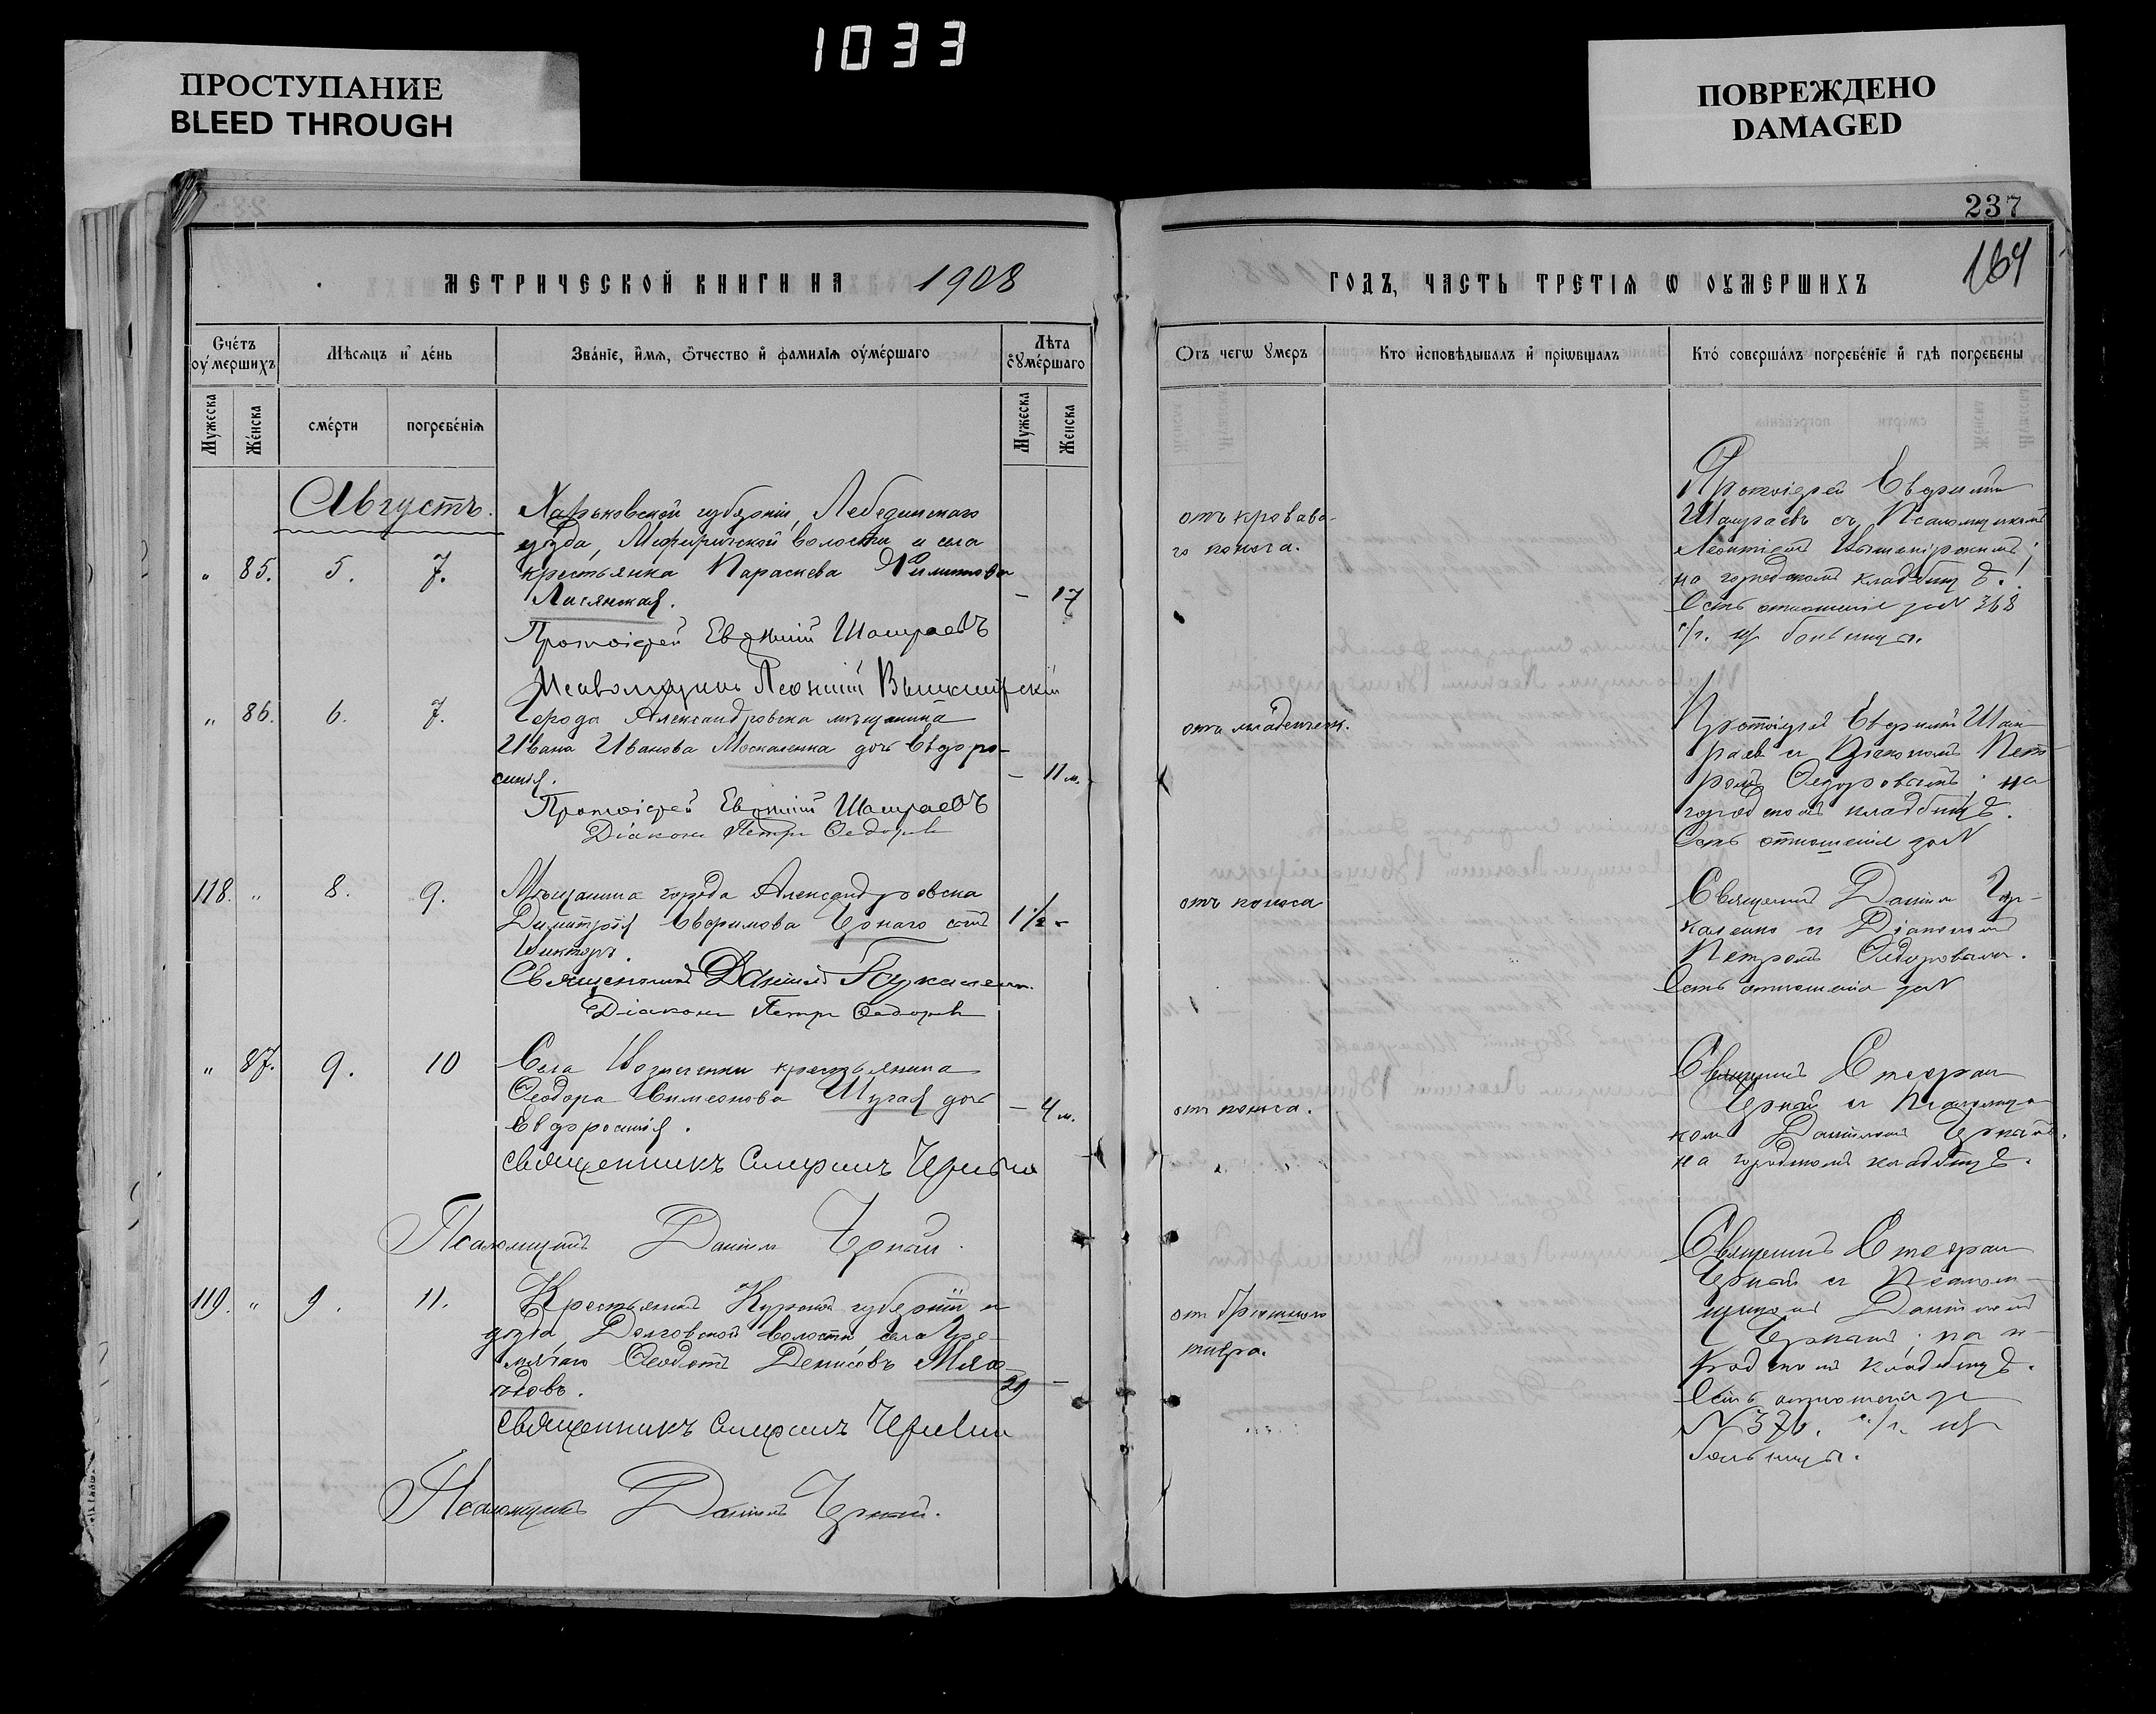 1033
ПРОСТУПАНИЕ
BLEED THROUGH
ПОВРЕЖДЕНО
DAMAGED
237
164
МЕТРИЧЕСКОЙ КНИГИ НА 1908
ГОДЪ, ЧАСТЬ ТРЕТІѦ Ѡ ОУМЕРШИХЪ
Счéтъ оу́мершихъ
Мѣсѧцъ и҆ дéнь
Звáнїе, и҆́мѧ, ѻ҆́тчество и҆ фамилїѧ оу҆мéршаго
Лѣта оу҆мéршаго
Мꙋжеска
Жéнска
смéрти
погребéнїѧ
Мꙋжеска
Женска
Отъ чегѡ ꙋмеръ
Кто и҆сповѣдывалъ и҆ прїѡбщалъ
Ктó совершáлъ погребéнїе и҆ гдѣ погребены
Августъ.
" 85. 5. 7.
Харьковской губерніи, Лебединскаго
уѣзда, волости и села
крестьянка Параскева
Лисянская.
– 17
Протоіерей Евфимій Шамраевъ
Псаломщикъ Леонтій
отъ кроваваго поноса.
Протоіерей Евфимій
Шамраевъ съ Псаломщикомъ
Леонтіемъ
на городскомъ кладбищѣ.
Есть отношеніе за N 368
с/г. изъ больницы.
" 86. 6. 7.
Города Александровска мѣщанина
Ивана Иванова Москаленка дочь Евфро-
синія.
– 11 м.
Протоіерей Евфимій Шамраевъ
Діаконъ Петръ Ѳедоровъ
отъ младенческ.
Протоіерей Евфимій Шам-
раевъ съ Діакономъ Пет-
ромъ Ѳедоровымъ; на
городскомъ кладбищѣ.
Есть отношеніе за N
118. " 8. 9.
Мѣщанина города Александровска
Димитрія Евфимова Чернаго сынъ
Викторъ.
1 1/2 –
Священникъ Даніилъ
Діаконъ Петръ Ѳедоровъ
отъ поноса
Священникъ Даніилъ
съ Діакономъ
Петромъ Ѳедоровымъ.
Есть отношеніе за N
" 87. 9. 10
Села Вознесенки крестьянина
Ѳеодора Симеонова дочь
Евфросинія.
– 4 м.
священникъ Стефанъ Черный
Псаломщикъ Даніилъ Черный.
отъ поноса.
Священникъ Стефанъ
Черный съ Псаломщи-
комъ Даніиломъ Чернымъ.
на городскомъ кладбищѣ.
119. " 9. 11.
Крестьянинъ Курской губерніи и
уѣзда, Долговской волости, села
Ѳеодотъ Денисовъ
29 –
священникъ Стефанъ Черный
Псаломщикъ Даніилъ Черный.
отъ брюшного
тифа.
Священникъ Стефанъ
Черный съ Псалом-
щикомъ Даніиломъ
Чернымъ; на
кладбищѣ.
Есть отношеніе за
N 370. с/г. изъ
больницы.